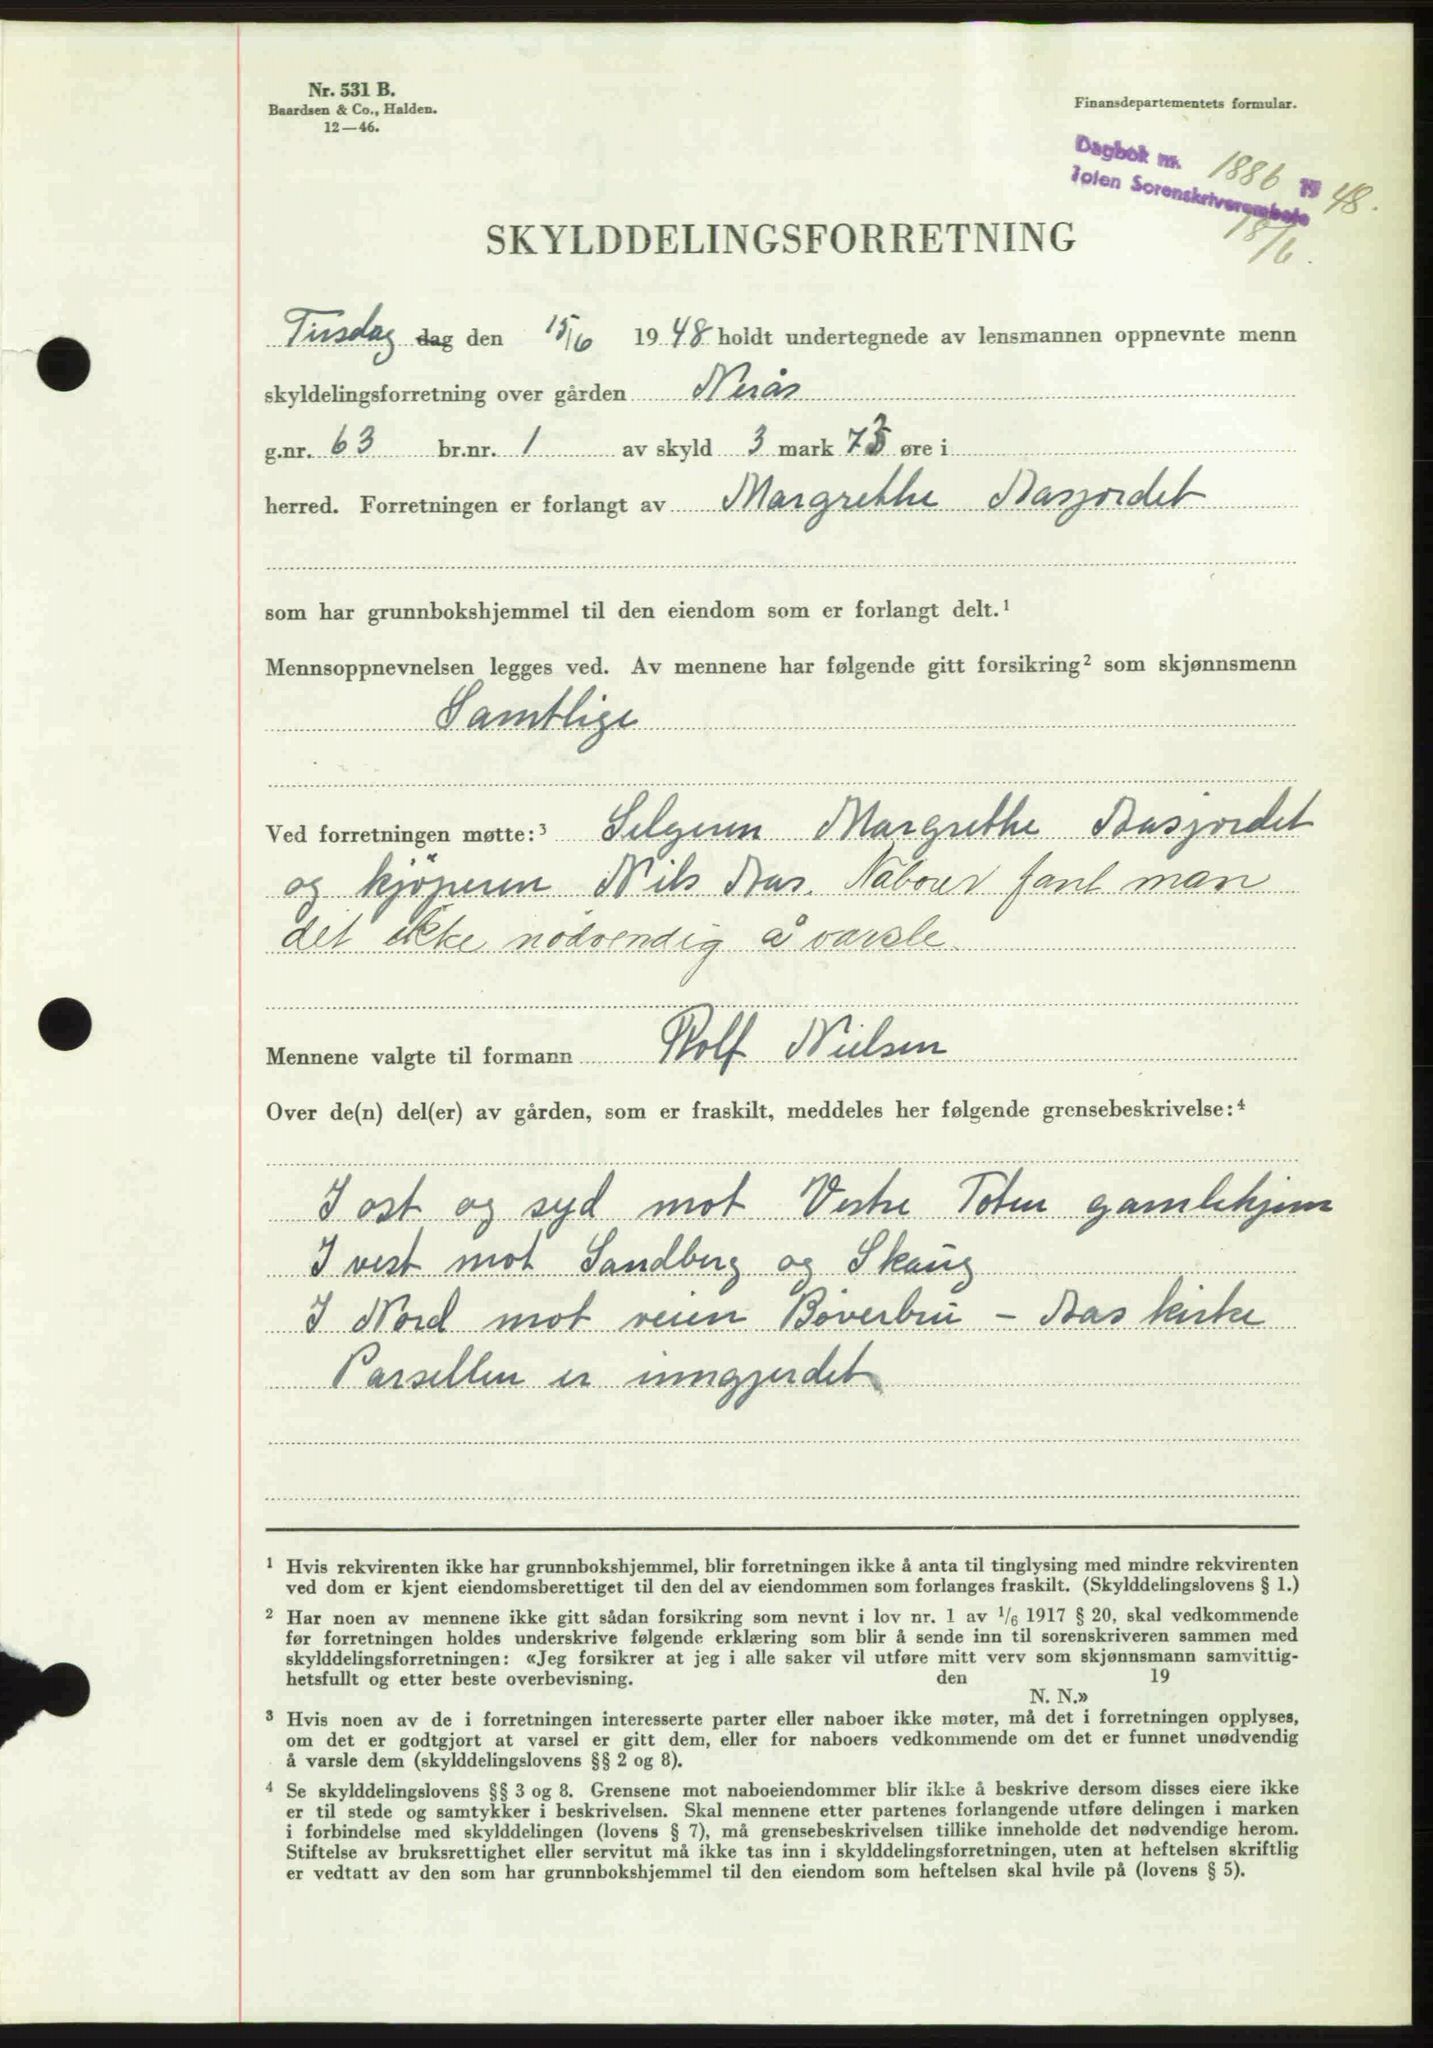 Nr. 531 B.
Baardsen & Co., Halden.
12—46.
Finansdepartementets formular.
Dagbok nr. 1886 19 48.
Toten Sorenskriverembete
18/6.
SKYLDDELINGSFORRETNING
Tirsdag dag den 15/6 1948 holdt undertegnede av lensmannen oppnevnte menn
skyldelingsforretning over gården Nerås
g.nr. 63 br.nr. 1 av skyld 3 mark øre i
herred. Forretningen er forlangt av Margrethe Aasjordet
som har grunnbokshjemmel til den eiendom som er forlangt delt.¹
Mennsoppnevnelsen legges ved. Av mennene har følgende gitt forsikring² som skjønnsmenn
Samtlige
Ved forretningen møtte:³ Selgeren Margrethe Aasjordet
og kjöperen Nils Aas. Naboer fant man
det ikke nödvendig å varsle.
Mennene valgte til formann Rolf Nielsen
Over de(n) del(er) av gården, som er fraskilt, meddeles her følgende grensebeskrivelse:⁴
I ost og syd mot Vestre Toten gamlehjem
I vest mot Sandberg og Skaug
I Nord mot veien Bøverbru – Aas kirke
Parsellen er inngjerdet
¹ Hvis rekvirenten ikke har grunnbokshjemmel, blir forretningen ikke å anta til tinglysing med mindre rekvirenten
ved dom er kjent eiendomsberettiget til den del av eiendommen som forlanges fraskilt. (Skylddelingslovens § 1.)
² Har noen av mennene ikke gitt sådan forsikring som nevnt i lov nr. 1 av 1/6 1917 § 20, skal vedkommende
før forretningen holdes underskrive følgende erklæring som blir å sende inn til sorenskriveren sammen med
skylddelingsforretningen: «Jeg forsikrer at jeg i alle saker vil utføre mitt verv som skjønnsmann samvittig-
hetsfullt og etter beste overbevisning. den 19
N. N.»
³ Hvis noen av de i forretningen interesserte parter eller naboer ikke møter, må det i forretningen opplyses,
om det er godtgjort at varsel er gitt dem, eller for naboers vedkommende om det er funnet unødvendig
å varsle dem (skylddelingslovens §§ 2 og 8).
⁴ Se skylddelingslovens §§ 3 og 8. Grensene mot naboeiendommer blir ikke å beskrive dersom disses eiere ikke
er til stede og samtykker i beskrivelsen. Skal mennene etter partenes forlangende utføre delingen i marken
i forbindelse med skylddelingen (lovens § 7), må grensebeskrivelsen tillike inneholde det nødvendige herom.
Stiftelse av bruksrettighet eller servitut må ikke tas inn i skylddelingsforretningen, uten at heftelsen skriftlig
er vedtatt av den som har grunnbokshjemmel til den eiendom som heftelsen skal hvile på (lovens § 5).